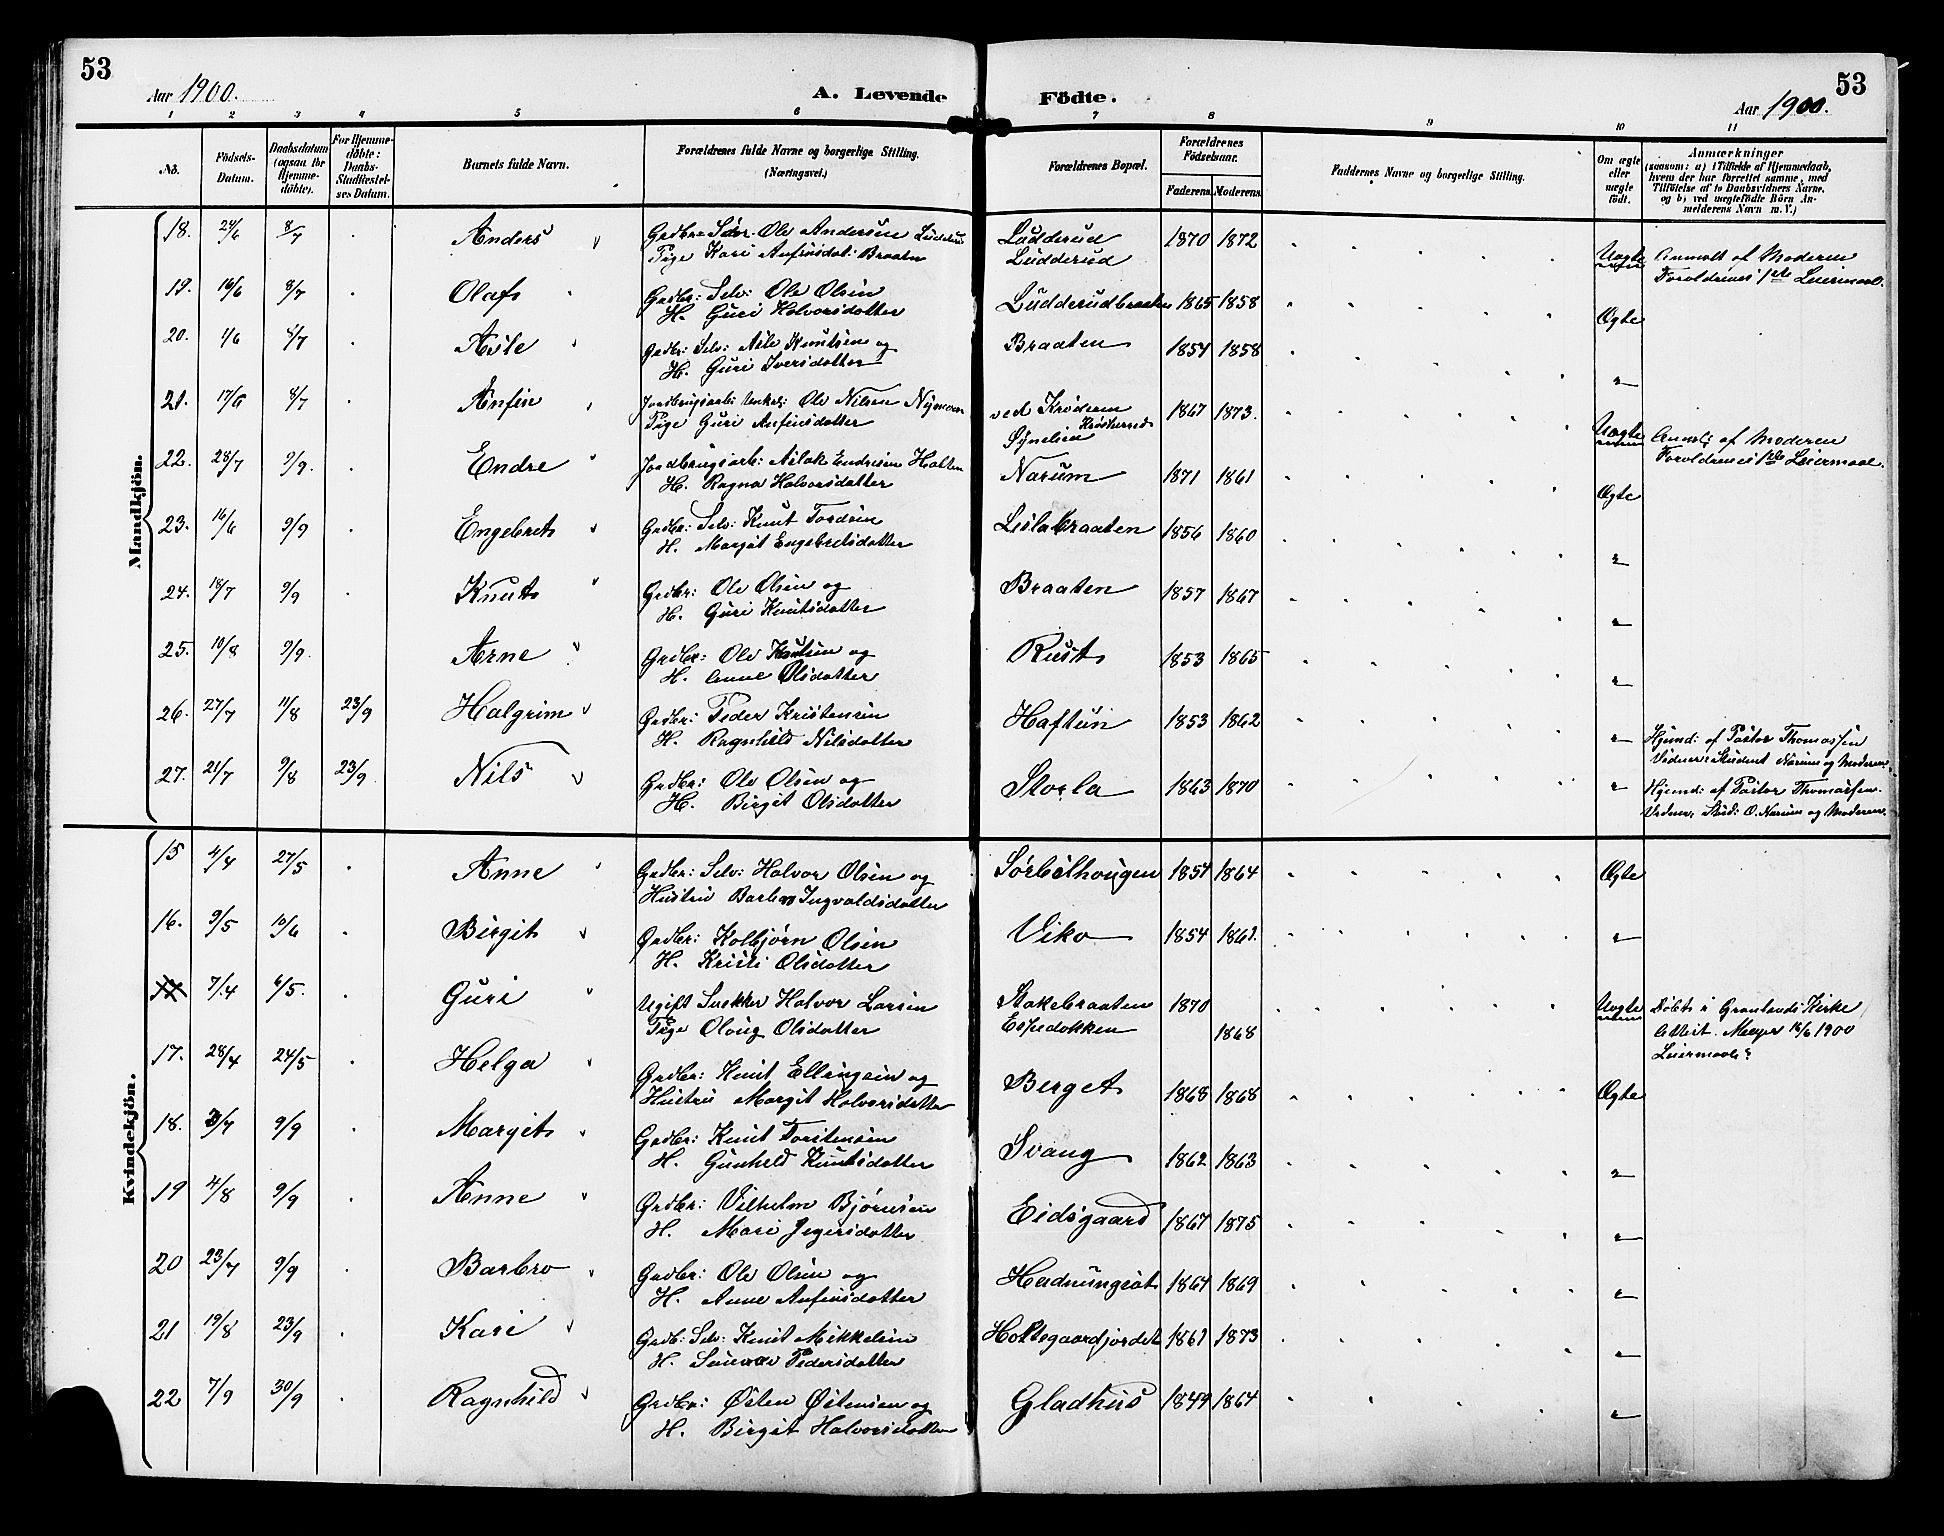 53
Aar 1900.
A. Levende Födte.
Aar 1900.
53
1 2 3 4 5 6 7 8 9 10 11
No.
Födsels-Datum.
Daabsdatum (ogsaa for Hjemmedöbte).
For Hjemmedöbte: Daabs-Stadfæstelses Datum.
Barnets fulde Navn.
Forældrenes fulde Navne og borgerlige Stilling. (Næringsvei.)
Forældrenes Bopæl.
Forældrenes Födselsaar.
Faderens. Moderens.
Faddernes Navne og borgerlige Stilling.
Om ægte eller uægte födt.
Anmærkninger
(saasom: a) i Tilfælde af Hjemmedaab, hvem der har forrettet samme, med Tilföielse af to Daabsvidners Navne, og b) ved uægtefödte Börn Anmelderens Navn m. V.)
Mandkjön.
18. 24/6 8/7 Anders Grdbr: Søn: Ole Andersen Ludderud Ludderud 1870 1872 Uægte Anmeldt af Moderen
Pige Kari Anfinsdat: Braaten Ludderud Forældrenes 1ste Leiermaal.
19. 16/6 8/7 Olaf Grdbr: Selv: Ole Olsen Ludderudbraaten 1865 1858 Ægte
H. Guri Halvorsdatter
20. 1/6 8/7 Asle Grdbr: Selv: Asle Knutsen og Braaten 1854 1858 "
H. Guri Iversdatter
21. 17/6 8/7 Anfin Jordbrugsarb: Unkel: Ole Nilsen Nymoen ved Krøderen 1867 1873. Uægte Anm: af Moderen
Pige Guri Anfinsdatter Krødsherred Synelien Forældrenes 1ste Leiermaal.
22. 28/7 9/9. Endre Jordbrugsarb: Aslak Endresen Halten Narum 1871 1861 Ægte
H. Ragna Halvorsdatter
23. 16/6 9/9 Engebret Grdbr: Selv: Knut Tordsen Leslabraaten 1856 1860 "
H. Margit Engebretsdatter
24. 18/7 9/9 Knut Grdbr: Ole Olsen og Braaten 1857 1867 "
H. Guri Knutsdatter
25. 10/8 9/9. Arne Grdbr: Ole Knutsen og Rust 1853 1865 "
H. Anne Olsdatter
26. 27/7 11/8 23/9 Halgrim Grdbr: Peder Kristensen Haftun 1853 1862 " Hjemd: af Pastor Thomassen
H. Ragnhild Nilsdatter Vidner: Student Narum og Moderen.
27. 21/7 9/8 23/9 Nils Grdbr: Ole Olsen og Storla 1863 1870 " Hjemd: af Pastor Thomassen.
H. Birgit Olsdatter Vidner: Stud: O. Narum og Moderen.
Kvindekjön.
15 4/4 27/5 Anne Grdbr: Selv: Halvor Olsen og Sørbølhougen 1854 1864 Ægte
Hustru Barbro Ingvaldsdatter
16. 9/5 10/6 Birgit Grdbr: Kolbjørn Olsen Viko 1854 1861. "
H. Kristi Olsdatter
7/4 6/5. Guri Ugift Snekker Halvor Larsen Stakebraaten 1870 Uægte Døbt i Grønlands Kirke
Pige Oloug Olsdatter Espedokken 1868 Attest. Meyer 18/6 1900
Leiermaal?
17. 28/4 24/5 Helga Grdbr: Knut Ellingsen og Berget 1868 1868 Ægte
Hustru Margit Halvorsdatter
18. 3/7 9/9 Margit Grdbr: Knut Torstensen Svang 1862 1863 "
H. Gunhild Knutsdatter
19 4/8 9/9 Anne Grdbr: Vilhelm Bjørnsen Eidsgaard 1867 1875 "
H. Mari Jegersdatter
20 23/7 9/9 Barbro Grdbr: Ole Olsen og Hadnungsat 1864 1869 "
H. Anne Anfinsdatter
21 19/8 23/9 Kari Grdb: Selv: Knut Mikkelsen Holtegaardjordet 1861 1873 "
H. Pedersdatter
22 7/9 30/9 Ragnhild Grdbr: Østen Østensen og Gladhus 1849 1864 "
H. Birgit Halvorsdatter